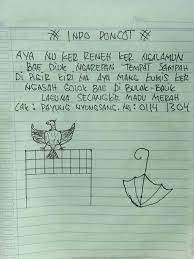 * INDO DONCOT *
AYA NU KER REMEH KER NGALAMUN
BAE DIUK NGAREPAN TEMPAT SAMPAH
DI PIGIR KIRI NA AYA MANG KUMIS KER
NGASAH GOLOK BAE DI BULAK-BALIK
LAGUNA SECANGKIR MADU MERAH
CAK: PAYUNG NYUNGSANG. NO: 0114 1304